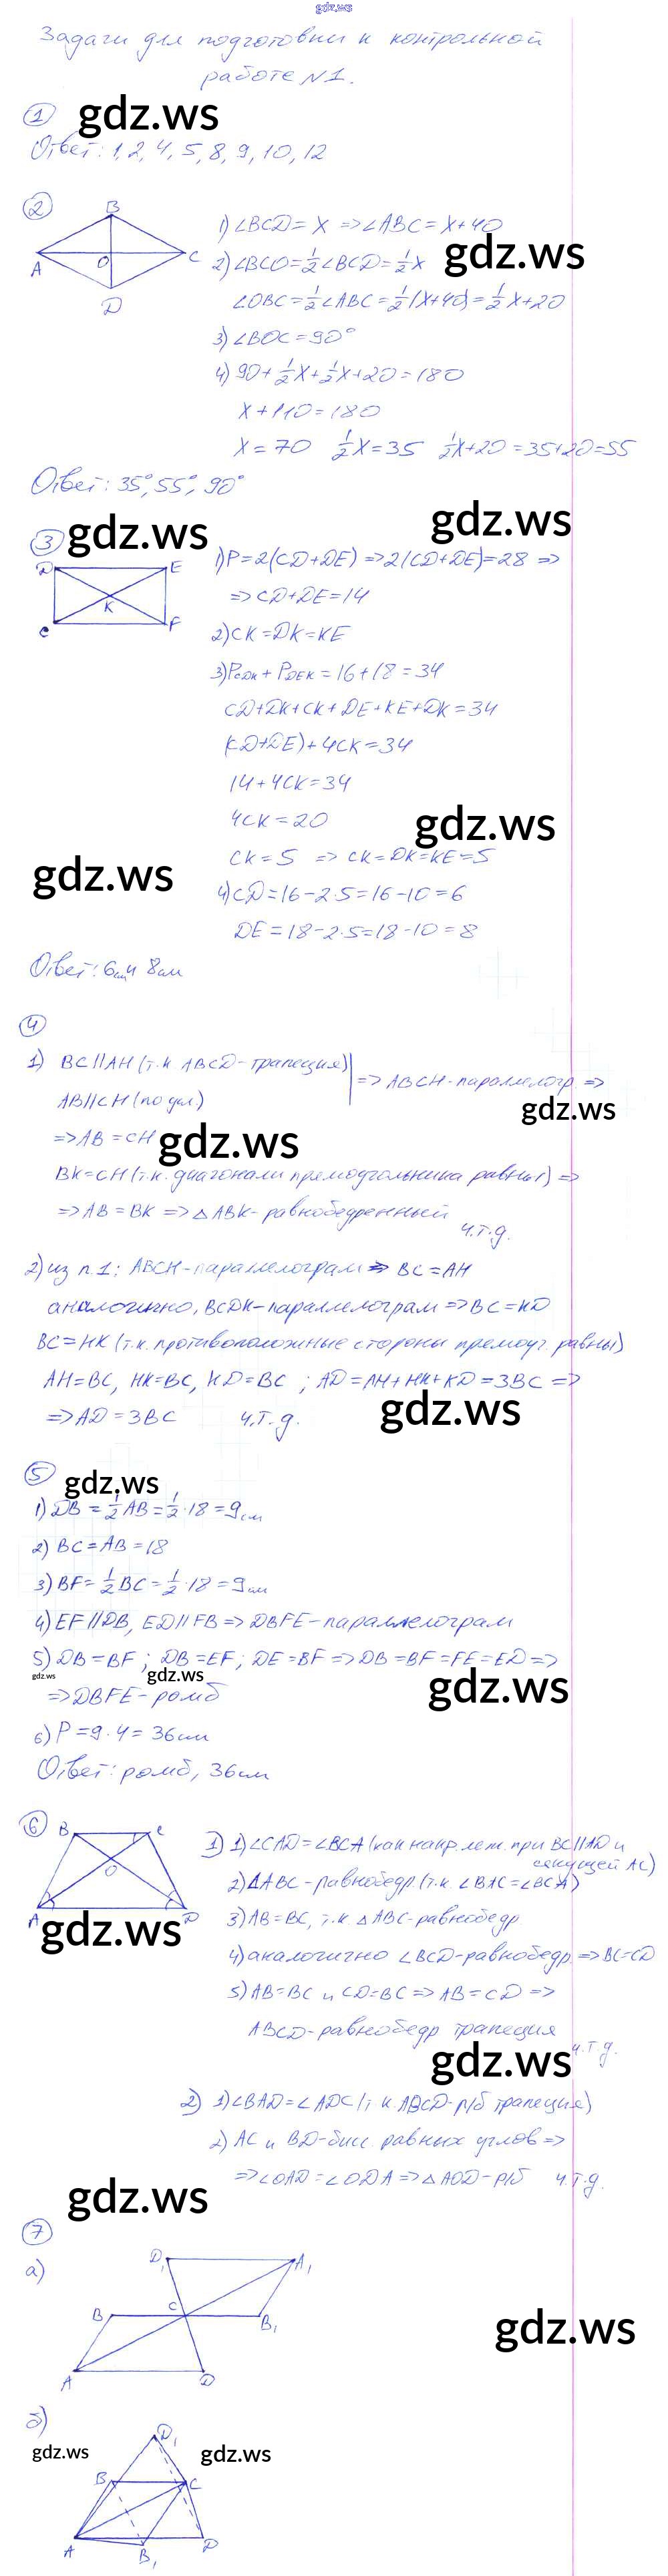 gdz.ws
Задачи для подготовки к контрольной
работе №1.
1 gdz.ws
Ответ: 1, 2, 4, 5, 8, 9, 10, 12
2
B
A O C
D
1) ∠BCD = x => ∠ABC = x+40
gdz.ws
2) ∠BCO = 1/2 ∠BCD = 1/2 x
∠OBC = 1/2 ∠ABC = 1/2 (x+40) = 1/2 x+20
3) ∠BOC = 90°
4) 90 + 1/2 x + 1/2 x + 20 = 180
x + 110 = 180
x = 70 1/2 x = 35 1/2 x+20 = 35+20 = 55
Ответ: 35°, 55°, 90°
3 gdz.ws gdz.ws
D E
K
C F
1) P = 2(CD+DE) => 2(CD+DE) = 28 =>
=> CD+DE = 14
2) CK = DK = KE
3) PCDK + PDEK = 16 + 18 = 34
CD+DK+CK+DE+KE+DK = 34
(CD+DE)+4CK = 34
14+4CK = 34
4CK = 20
gdz.ws
CK = 5 => CK = DK = KE = 5
gdz.ws
4) CD = 16-2·5 = 16-10 = 6
DE = 18-2·5 = 18-10 = 8
Ответ: 6см и 8см
4
1) BC||AH (т.к ABCD-трапеция)
AB||CH (по усл.)
=> ABCH-параллелогр =>
gdz.ws
=> AB = CH
gdz.ws
BK = CH (т.к. диагонали прямоугольника равны) =>
=> AB = BK => △ABK-равнобедренный
ч.т.д.
2) из п.1: ABCH-параллелограм => BC = AH
аналогично, BCDK-параллелограм => BC = KD
BC = HK (т.к. противоположные стороны прямоуг. равны)
AH = BC, HK = BC, KD = BC ; AD = AH + HK + KD = 3BC =>
gdz.ws
=> AD = 3BC ч.т.д.
5 gdz.ws
1) DB = 1/2 AB = 1/2 · 18 = 9см
2) BC = AB = 18
3) BF = 1/2 BC = 1/2 · 18 = 9см
4) EF||DB, ED||FB => DBFE-параллелограм
5) DB = BF ; DB = EF ; DE = BF => DB = BF = FE = ED =>
gdz.ws gdz.ws gdz.ws
=> DBFE-ромб
6) P = 9·4 = 36см
Ответ: ромб, 36см
6
B C
O
A D
gdz.ws
1) 1) ∠CAD = ∠BCA (как накр. леж. при BC||AD и
секущей AC)
2) △ABC-равнобедр (т.к. ∠BAC = ∠BCA)
3) AB = BC, т.к △ABC-равнобедр
4) аналогично ∠BCD-равнобедр => BC = CD
5) AB = BC и CD = BC => AB = CD =>
ABCD-равнобедр трапеция
ч.т.д.
gdz.ws
2) 1) ∠BAD = ∠ADC (т.к. ABCD-р/б трапеция)
2) AC и BD-бис. равных углов =>
=> ∠OAD = ∠ODA => △AOD-р/б ч.т.д.
gdz.ws
7
а)
D1 A1
B C B1
A D
gdz.ws
б)
D1
gdz.ws gdz.ws
B C
A B1 D